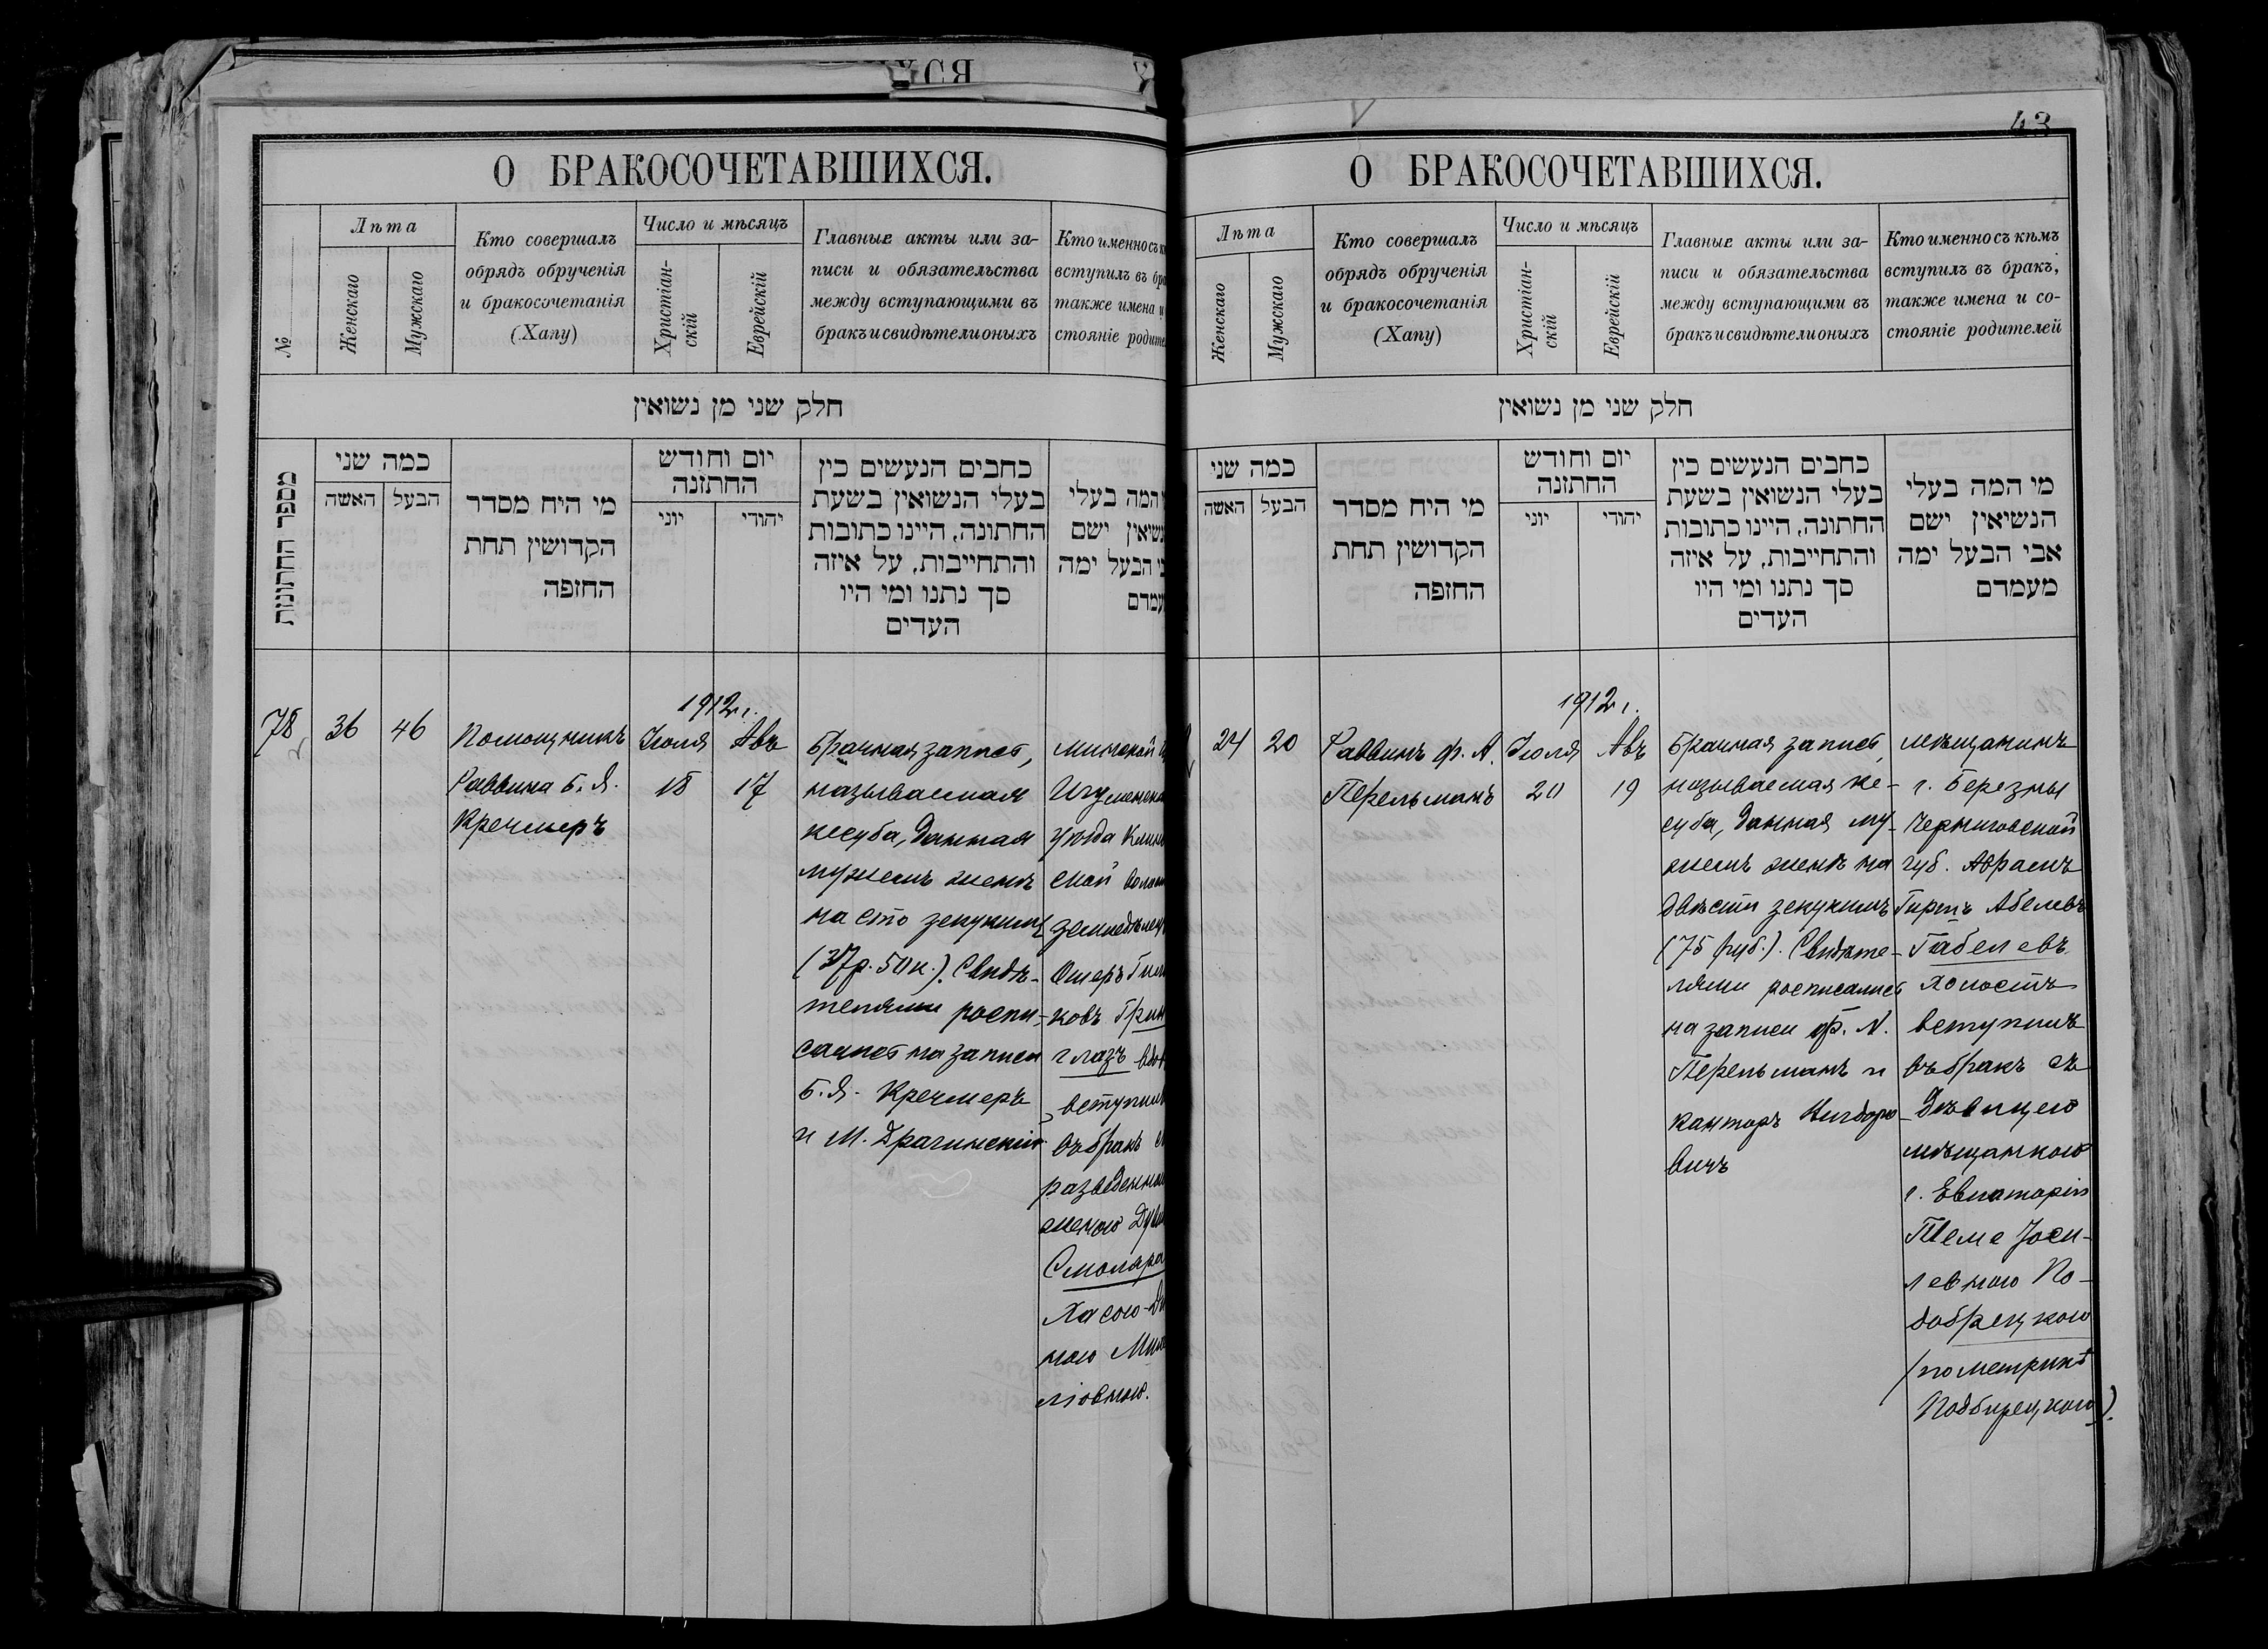 О БРАКОСОЧЕТАВШИХСЯ.
№
Лѣта
Женскаго
Мужскаго
Кто совершалъ
обрядъ обрученія
и бракосочетанія
(Хапу)
Число и мѣсяцъ
Христіан-
скій
Еврейскій
Главные акты или за-
писи и обязательства
между вступающими въ
бракъ и свидѣтели оныхъ
Кто именно съ
вступилъ въ
также имена и
стояніе
חלק שני מן נשואין
מספר החתונות
כמה שני
האשה
הבעל
מי היח מסדר
הקדושין תחת
החזפה
יום וחודש
החתזנה
יוני
יהודי
כחבים הנעשים כין
בעלי הנשואין בשעת
החתונה, היינו כתובות
והתחייבות, על איזה
סך נתנו ומי היו
העדים
המה בעלי
ישם
הבעל ימה
78
36
46
Помощникъ
Раввина Б. Я.
Кречмеръ
1912 г.
Іюля
18
Авъ
17
Брачная запись,
называемая
кесуба, данная
мужемъ женѣ
на сто зекукимъ
(37 р. 50 к.). Свидѣ-
телями роспи-
сались на записи
Б. Я. Кречмеръ
и М. Драгинскій
Минской
Игуменска
уѣзда
ской
земледѣлец
Ошеръ
ковъ Грин
глазъ
вступил
въ бракъ
разведенной
женою
Смоляр
Хасею-
ною
ліовною.
43
О БРАКОСОЧЕТАВШИХСЯ.
Лѣта
Женскаго
Мужскаго
Кто совершалъ
обрядъ обрученія
и бракосочетанія
(Хапу)
Число и мѣсяцъ
Христіан-
скій
Еврейскій
Главные акты или за-
писи и обязательства
между вступающими въ
бракъ и свидѣтели оныхъ
Кто именно съ кѣмъ
вступилъ въ бракъ,
также имена и со-
стояніе родителей
חלק שני מן נשואין
כמה שני
האשה
הבעל
מי היח מסדר
הקדושין תחת
החזפה
יום וחודש
החתזנה
יוני
יהודי
כחבים הנעשים כין
בעלי הנשואין בשעת
החתונה, היינו כתובות
והתחייבות, על איזה
סך נתנו ומי היו
העדים
מי המה בעלי
הנשיאין ישם
אבי הבעל ימה
מעמדם
24
20
Раввинъ Ф. А.
Перельманъ
1912 г.
Іюля
20
Авъ
19
Брачная запись,
называемая ке-
суба, данная му-
жемъ женѣ на
двѣсти зекукимъ
(75 руб.). Свидѣте-
лями росписались
на записи Ф. А.
Перельманъ и
канторъ Нигдоро-
вичъ
мѣщанинъ
г. Березны
Черниговской
губ. Абрамъ
Гиршъ Абелевъ
Габелевъ
холостъ
вступилъ
въ бракъ съ
дѣвицею
мѣщанкою
г. Евпаторіи
Іоси-
левною По-
добрецкою
(по метрикѣ
Подбирецкою).